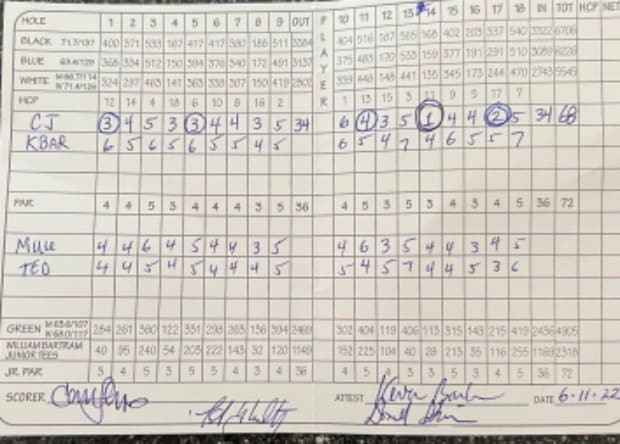 HOLE 1 2 3 4 5 6 7 8 9 OUT PLAYER 10 11 12 13 14 15 16 17 18 IN TOT HCP NET
BLACK 71.7/137 400 371 533 167 417 417 380 186 511 3384 404 516 187 565 168 402 203 337 540 3322 6706
BLUE 368 334 512 150 394 376 340 172 491 3137 375 483 170 533 159 377 191 291 510 3089 6226
WHITE 324 297 463 141 363 338 307 150 419 2802 339 448 148 441 135 345 173 244 470 2743 5545
HCP 12 14 4 18 6 10 8 16 2 1 13 15 3 11 9 5 17 7
CJ 3 4 5 3 3 4 4 3 5 34 6 4 3 5 1 4 4 2 5 34 68
KBAR 6 5 6 5 6 5 5 4 5 6 5 4 7 4 6 5 5 7
PAR 4 4 5 3 4 4 4 3 5 36 4 5 3 5 3 4 3 4 5 36 72
MULE 4 4 6 4 5 4 4 3 5 4 6 3 5 4 4 3 4 5
TED 4 4 5 4 5 4 4 4 5 5 4 5 7 4 4 5 3 6
GREEN 284 281 380 122 331 298 263 136 394 2469 302 404 119 406 113 315 143 215 419 2436 4905
WILLIAM BARTRAM JUNIOR TEES 40 95 240 54 203 222 143 32 120 1149 152 225 104 40 28 213 35 116 255 1169 2318
JR. PAR 3 4 5 3 5 4 3 4 36 4 5 3 3 5 3 4 5 36 72
SCORER ATTEST DATE 6-11-22